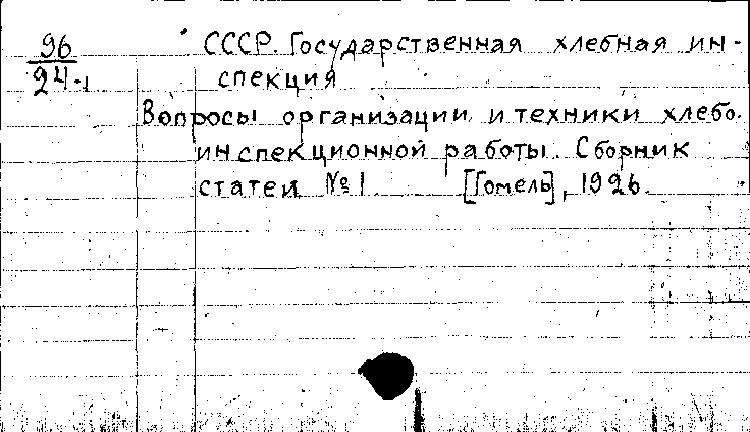 96
24-1
СССР. Государственная хлебная ин-
спекция
Вопросы организации и техники хлебо.
инспекционной работы. Сборник
статей №1 [Гомель], 1926.